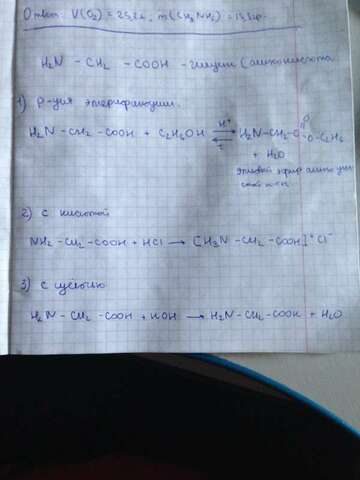 Ответ: V(O₂) = 25,2 л, m(CH₃NH₂) =
H₂N – CH₂ – COOH - глицин (аминокислота
1) Р-ция этерификации.
H₂N – CH₂ – COOH + C₂H₅OH ⇄ H⁺, t H₂N – CH₂ – C = O – O – C₂H₅
+ H₂O
этиловый эфир амино
2) с кислотой
NH₂ – CH₂ – COOH + HCl → [H₃N – CH₂ – COOH]⁺Cl⁻
3) с щёлочью
H₂N – CH₂ – COOH + HOH → H₂N – CH₂ – COOH + H₂O